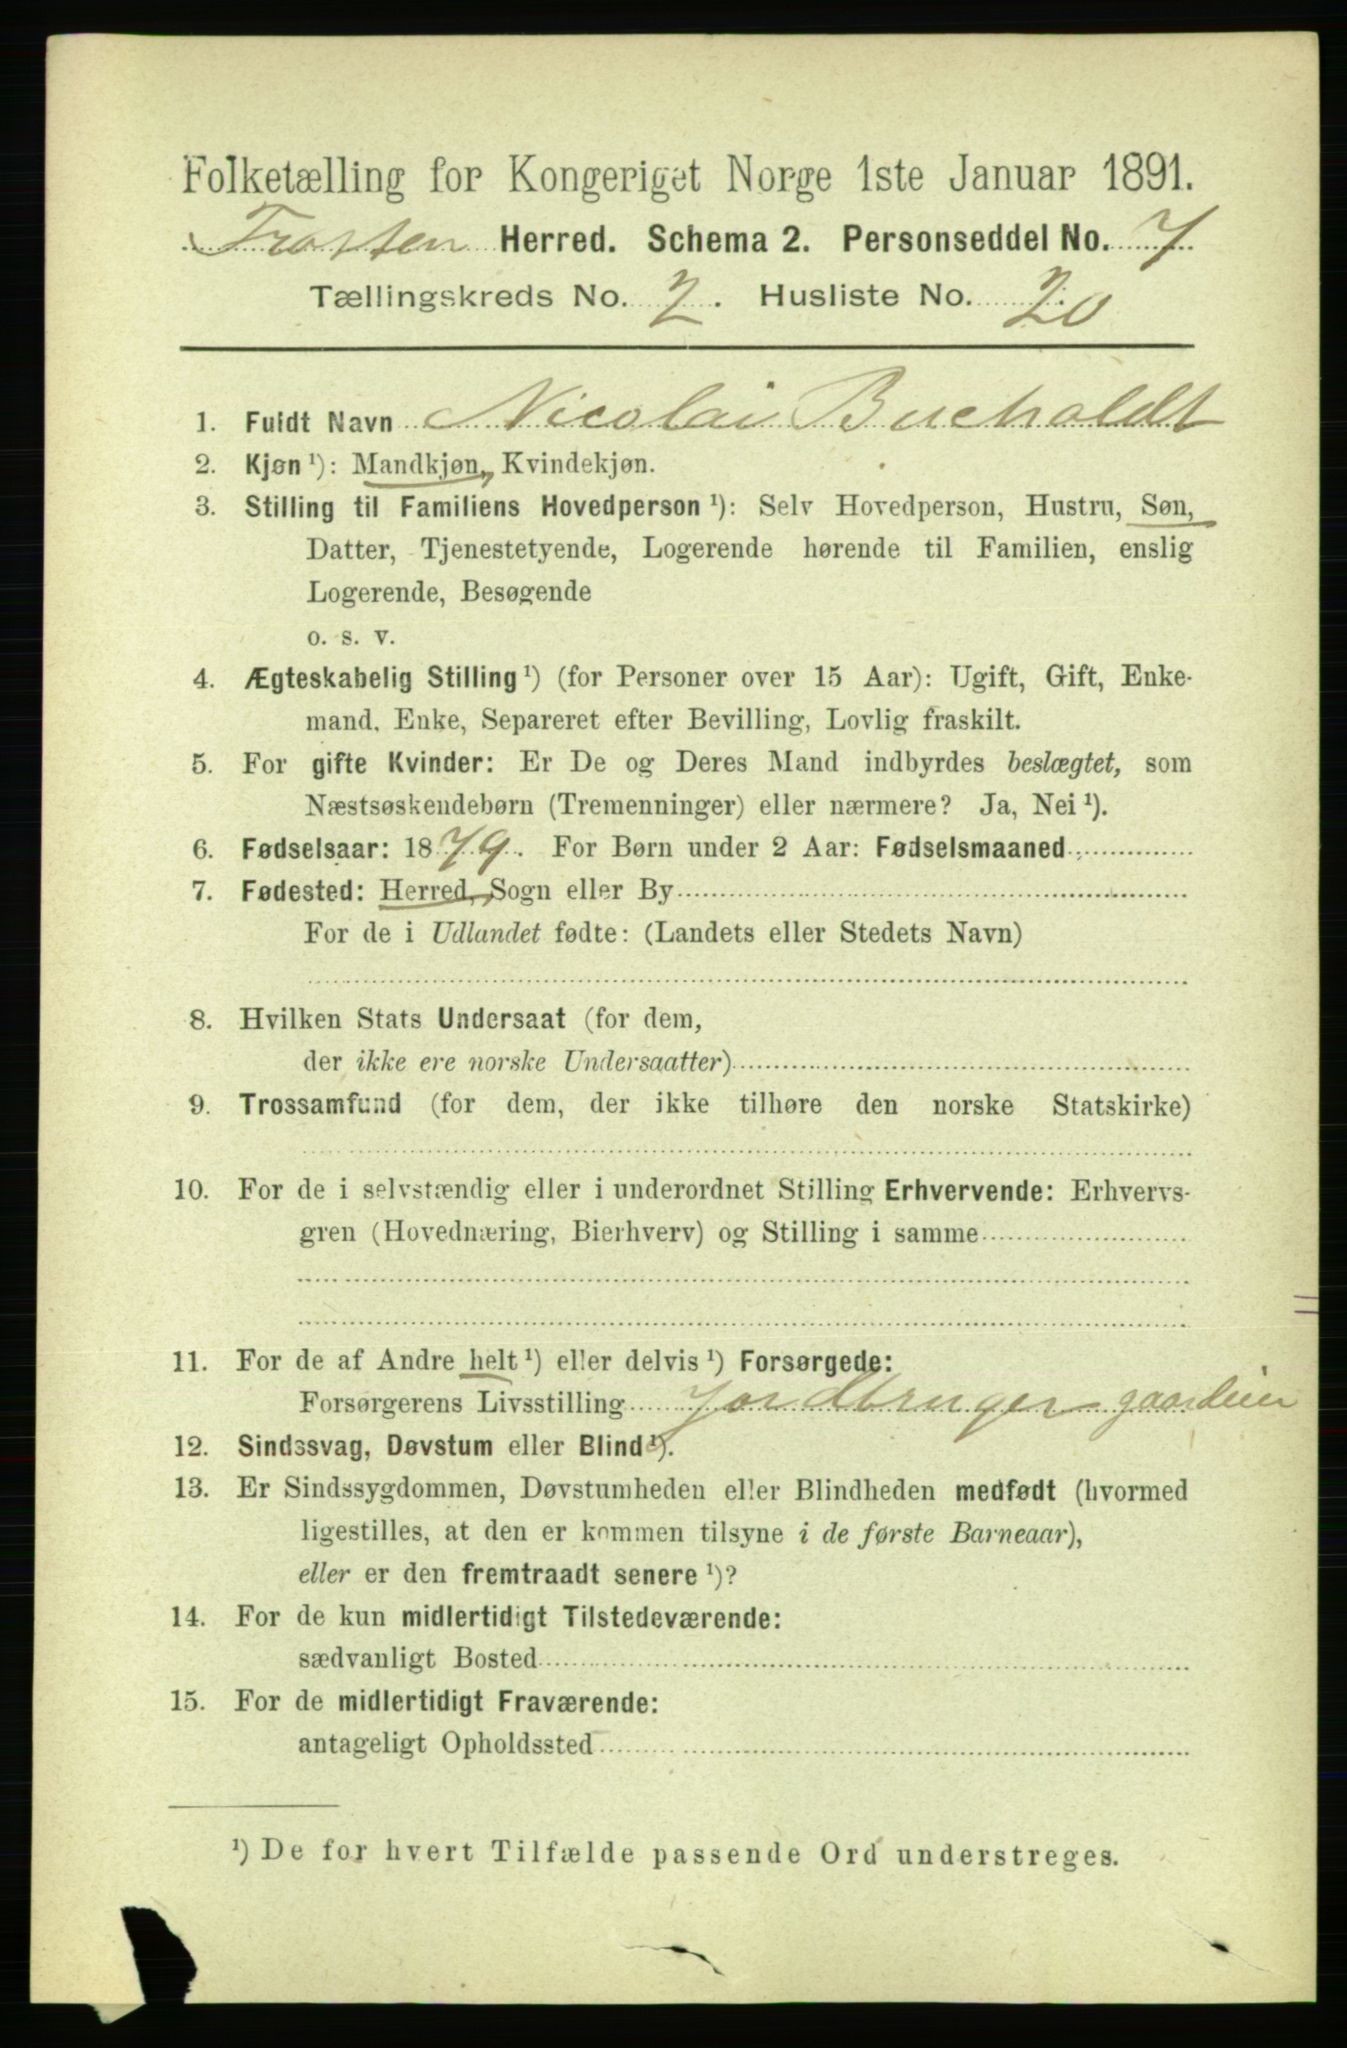 Folketælling for Kongeriget Norge 1ste Januar 1891.
Trosten Herred. Schema 2. Personseddel No. 7
Tællingskreds No. 2. Husliste No. 20
1. Fuldt Navn Nicolai Bucholdt
2. Kjøn ¹): Mandkjøn, Kvindekjøn.
3. Stilling til Familiens Hovedperson ¹): Selv Hovedperson, Hustru, Søn,
Datter, Tjenestetyende, Logerende hørende til Familien, enslig
Logerende, Besøgende
o. s. v.
4. Ægteskabelig Stilling ¹) (for Personer over 15 Aar): Ugift, Gift, Enke-
mand, Enke, Separeret efter Bevilling, Lovlig fraskilt.
5. For gifte Kvinder: Er De og Deres Mand indbyrdes beslægtet, som
Næstsøskendebørn (Tremenninger) eller nærmere? Ja, Nei ¹).
6. Fødselsaar: 1879. For Børn under 2 Aar: Fødselsmaaned
7. Fødested: Herred, Sogn eller By
For de i Udlandet fødte: (Landets eller Stedets Navn)
8. Hvilken Stats Undersaat (for dem,
der ikke ere norske Undersaatter)
9. Trossamfund (for dem, der ikke tilhøre den norske Statskirke)
10. For de i selvstændig eller i underordnet Stilling Erhvervende: Erhvervs-
gren (Hovednæring, Bierhverv) og Stilling i samme
11. For de af Andre helt ¹) eller delvis ¹) Forsørgede:
Forsørgerens Livsstilling Jordbruger gaardeier
12. Sindssvag, Døvstum eller Blind ¹).
13. Er Sindssygdommen, Døvstumheden eller Blindheden medfødt (hvormed
ligestilles, at den er kommen tilsyne i de første Barneaar),
eller er den fremtraadt senere ¹)?
14. For de kun midlertidigt Tilstedeværende:
sædvanligt Bosted
15. For de midlertidigt Fraværende:
antageligt Opholdssted
¹) De for hvert Tilfælde passende Ord understreges.